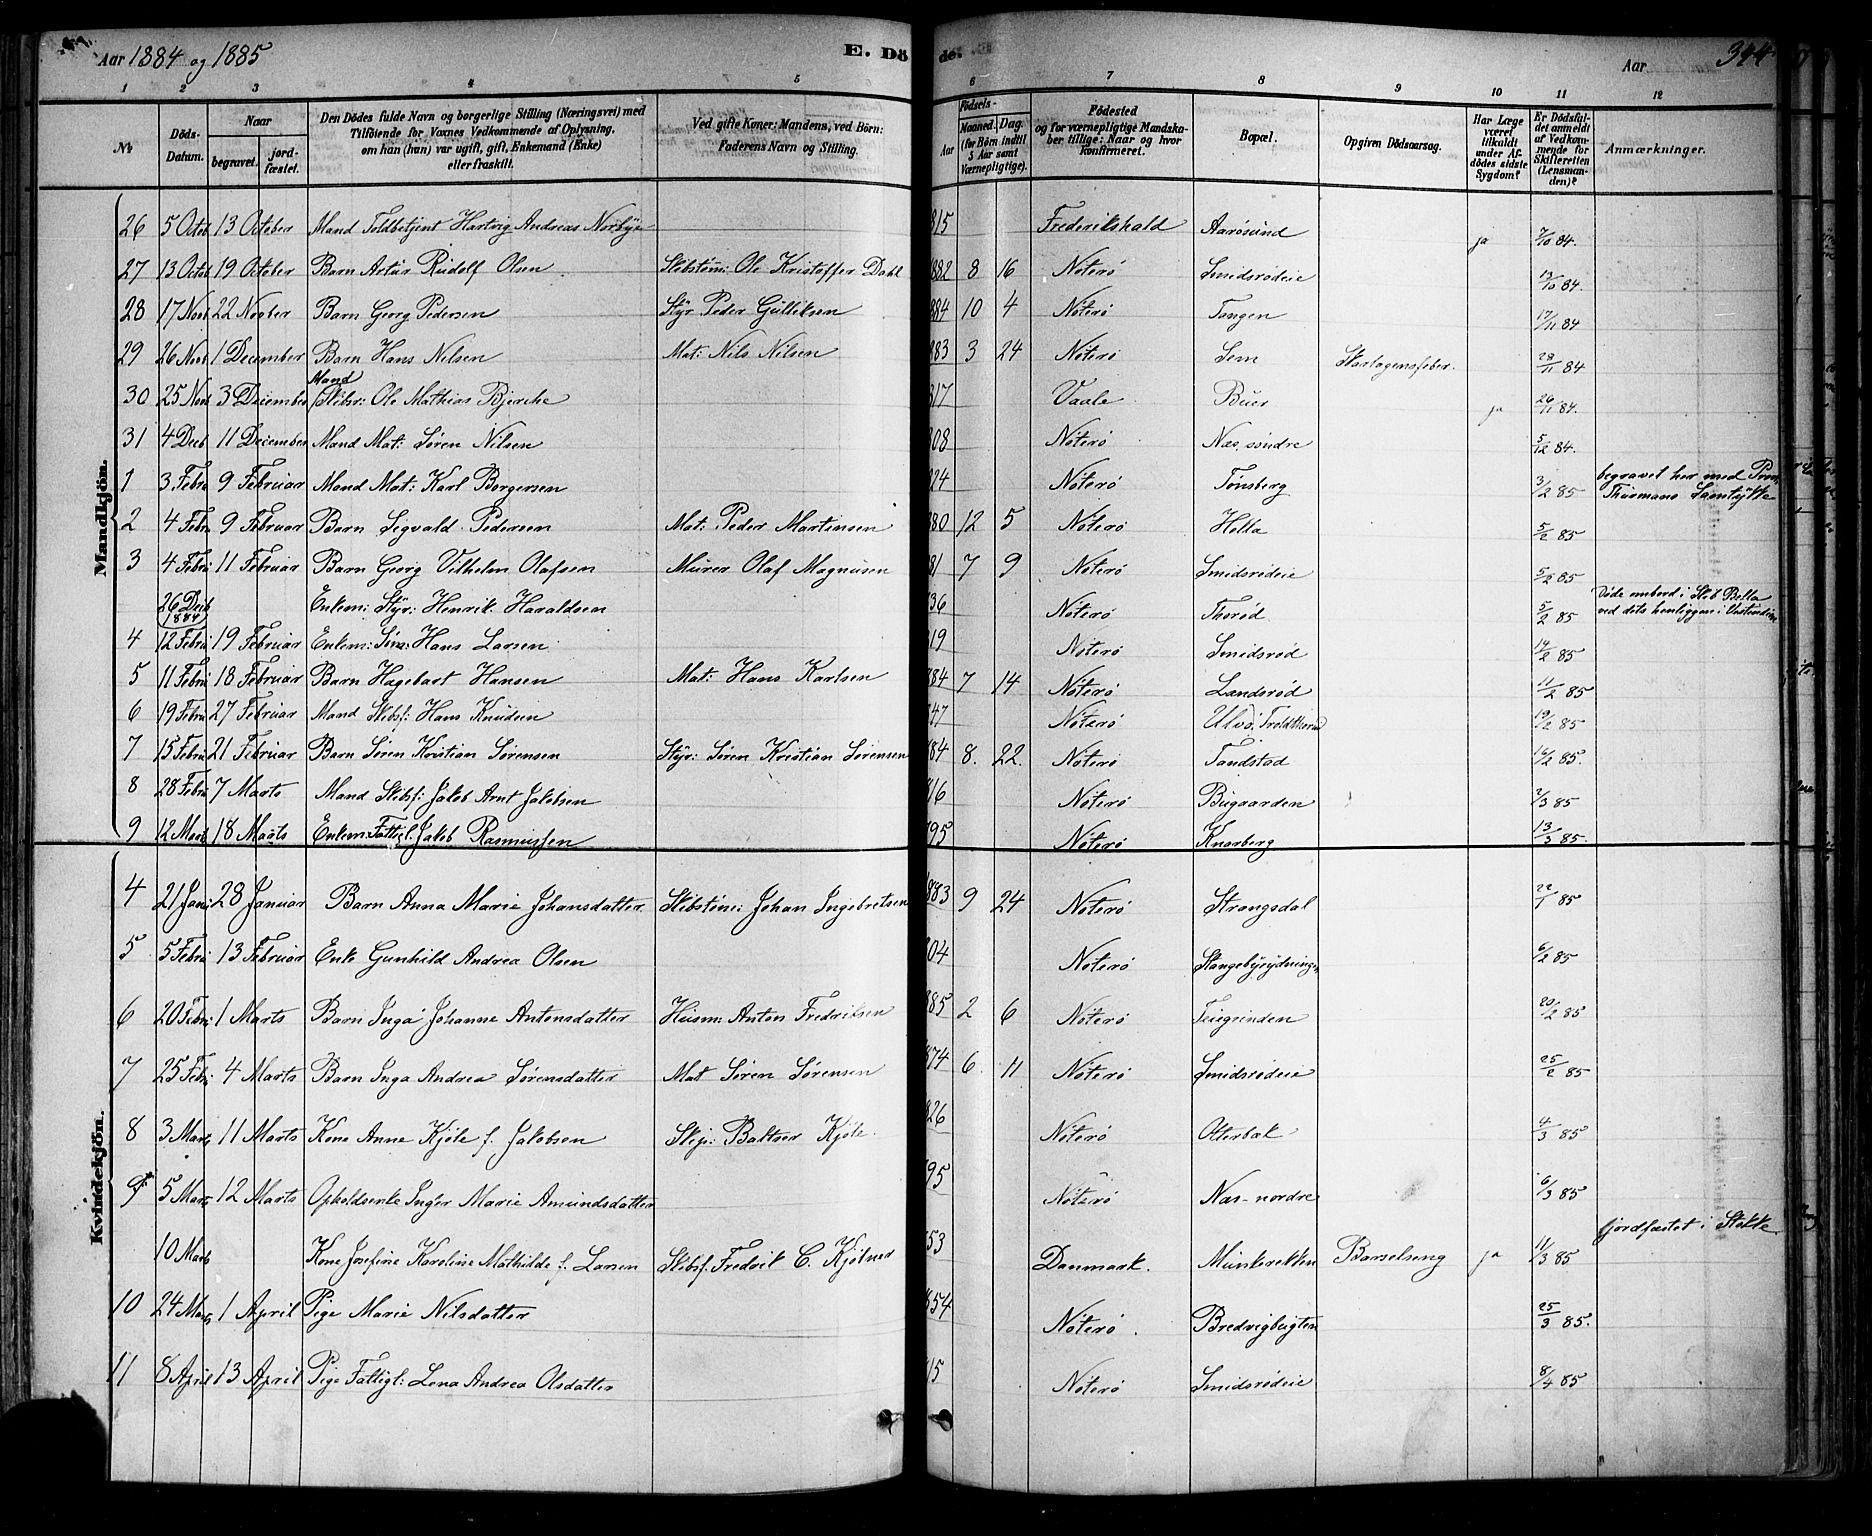 Aar 1884 og 1885 E. Dö de. Aar 344
1 2 3 4 5 6 7 8 9 10 11 12
No Döds-Datum. Naar begravet. jordfæstet. Den Dödes fulde Navn og borgerlige Stilling (Næringsvei) med Tilföiende for Voxnes Vedkommende af Oplysning, om han (hun) var ugift, gift, Enkemand (Enke) eller fraskilt. Ved gifte Koner: Mandens, ved Börn: Faderens Navn og Stilling. Födsels- Aar Maaned. Dag. (for Börn indtil 5 Aar samt Værnepligtige). Födested og for værnepligtige Mandskaber tillige: Naar og hvor konfirmeret. Bopæl. Opgiven Dödsaarsag. Har Læge været tilkaldt under Afdödes sidste Sygdom? Er Dödsfaldet anmeldt af Vedkommende for Skifteretten (Lensmanden)? Anmærkninger.
Mandkjön.
26 5 Octob 13 October Mand Toldbetjent Hartvig Andreas Norbye 815 Frederikshald Aarøsund ja 7/10 84.
27 13 Octob 19 October Barn Artur Rudolf Olsen Skibstøm: Ole Kristoffer Dahl 882 8 16 Nøterø Smidsrødeie 13/10 84.
28 17 Novb 22 Novber Barn Georg Pedersen Styr Peder Gulliksen 884 10 4 Nøterø Tangen 17/11 84
29 26 Novb 1 December Barn Hans Nilsen Mat: Nils Nilsen 883 3 24 Nøterø Sem Skarlagensfeber. 28/11 84
30 25 Novb 3 December Mand Skibsr: Ole Mathias Bjerche 817 Vaale Buer ja 26/11 84.
31 4 Decb 11 December Mand Mat: Søren Nilsen 808 Nøterø Næs, søndre 5/12 84.
1 3 Febru 9 Februar Mand Mat: Karl Borgersen 824 Nøterø Tønsberg 3/2 85 begravet her med Prov Thurmans Samtykke
2 4 Febru 9 Februar Barn Segvald Pedersen Mat: Peder Martinsen 880 12 5 Nøterø Hella 5/2 85
3 4 Febru 11 Februar Barn Georg Vilhelm Olafsen Murer Olaf Magnusen 81 7 9 Nøterø Smidsrødeie 5/2 85
26 Decb 1884 Enkem: Styr: Henrik Haraldsen 36 Nøterø Thorød 5/2 85 Døde ombord i Skib Bella ved dets henliggen i Vestindien
4 12 Febru 19 Februar Enkem: Søm: Hans Larsen 19 Nøterø Smidsrød 14/2 85
5 11 Febru 18 Februar Barn Hagebart Hansen Mat: Hans Karlsen 84 7 14 Nøterø Landsrød 11/2 85
6 19 Febru 27 Februar Mand Skibsf: Hans Knudsen 47 Nøterø Ulvø, 19/2 85
7 15 Febru 21 Februar Barn Søren Kristian Sørensen Styr: Søren Kristian Sørensen 84 8. 22. Nøterø Tandstad 16/2 85.
8 28 Febru 7 Marts Mand Skibsf: Jakob Arnt Jakobsen 16 Nøterø Bugaarden 2/3 85
9 12 Marts 18 Marts Enkem: Fattigl Jakob Rasmussen 95 Nøterø Knarberg 13/3 85.
Kvindekjön.
4 21 Janu 28 Januar Barn Anna Marie Johansdatter Skibstøm: Johan Ingebretsen 883 9 24 Nøterø Strengsdal 22/1 85
5 5 Febru 13 Februar Enke Gunhild Andrea Olsen 804 Nøterø Stangebyrydningen 6/2 85
6 20 Febru 1 Marts Barn Inga Johanne Antonsdatter Husm: Anton Fredriksen 885 2 6 Nøterø Feiegrinden 20/2 85
7 25 Febru 4 Marts Barn Inga Andrea Sørensdatter Mat Søren Sørensen 874 6. 11 Nøterø Smidsrødeie 25/2 85
8 3 Marts 11 Marts Kone Anne Kjøle f. Jakobsen Skip: Baltser Kjøle. 826 Nøterø Oterbæk 4/3 85
9 5 Marts 12 Marts Opholdsenke Inger Marie Amundsdatter 95 Nøterø Næs-nordre 6/3 85
10 Marts Kone Josefine Karoline Mathilde f. Larsen Skibsf. Fredrik C. Kjølner 53 Danmark. Munkerekken Barselseng ja 11/3 85 jordfæstet i Stokke
10 24 Marts 1 April Pige Marie Nilsdatter 854 Nøterø. Bredvigbugten 25/3 85.
11 8 April 13 April Pige Fattigl: Lena Andrea Olsdatter 15 Nøterø Smidsrødeie 8/4 85